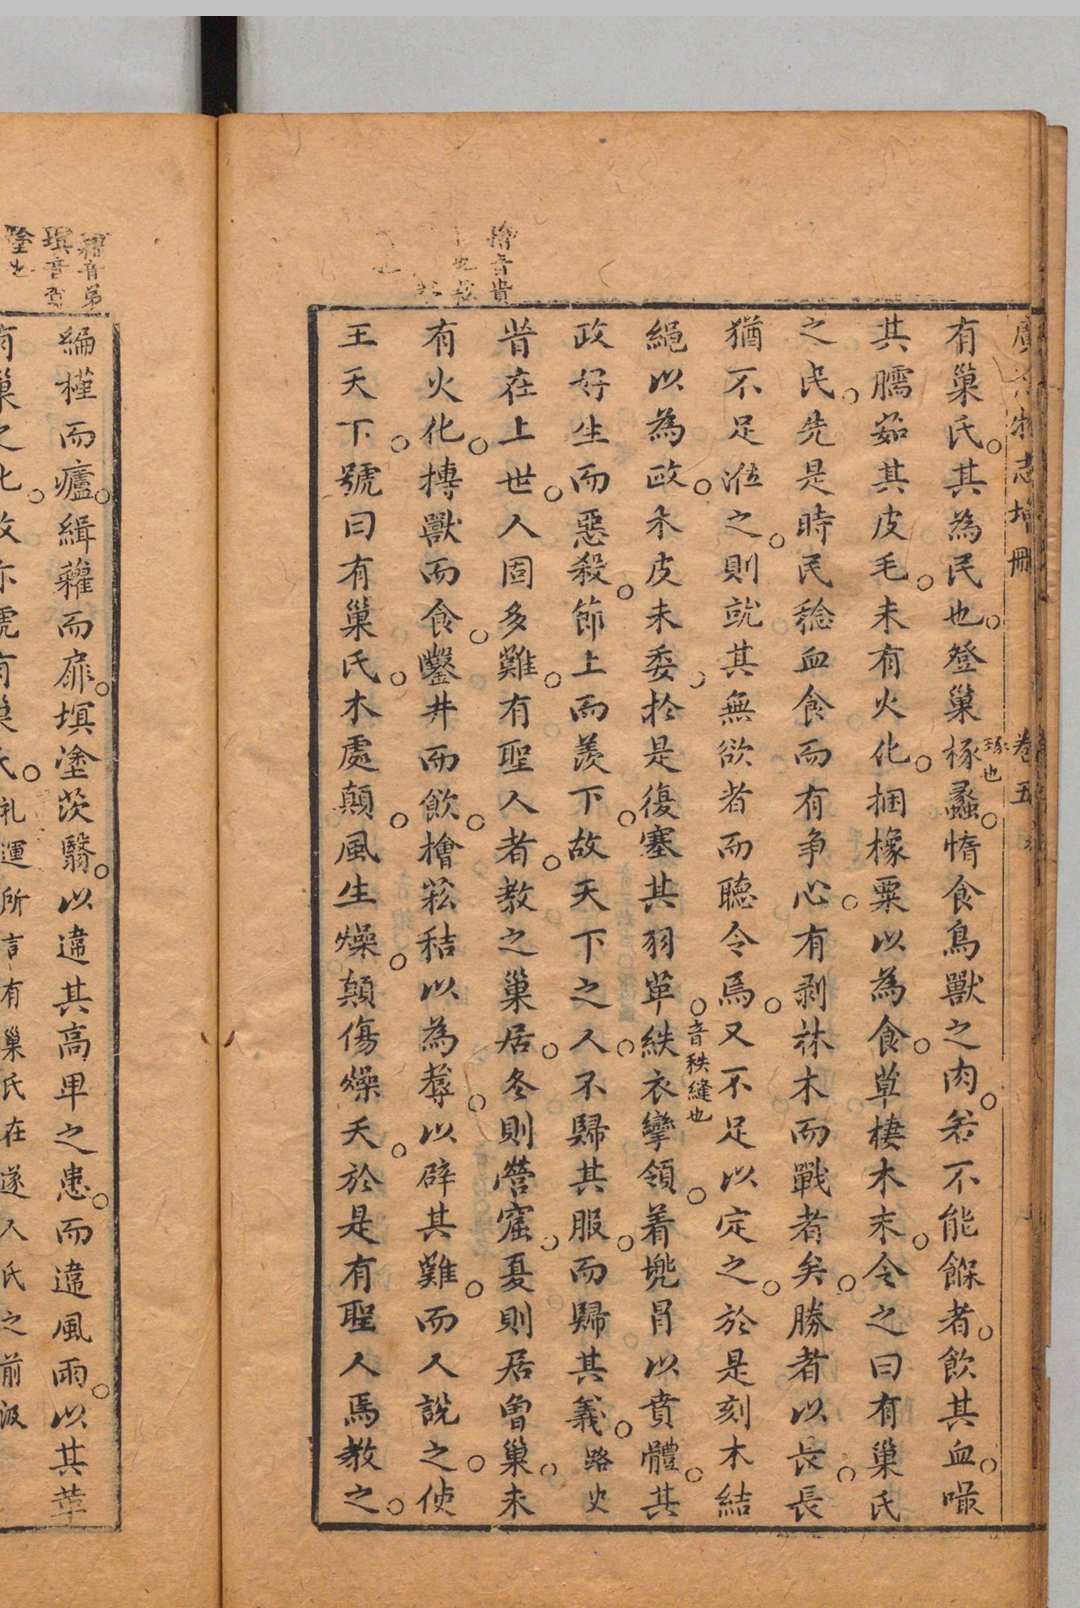 卷五
有巢氏其為民也登巢椓蠡惰食鳥獸之肉若不能餱者飲其血嘬
琢也
其臑茹其皮毛未有火化捆橡粟以為食草棲木末令之曰有巢氏
之民先是時民稔血食而有争心有剥林木而戰者矣勝者以長長
猶不足涖之則就其無欲者而聽令焉又不足以定之於是刻木結
繩以為政木皮未委於是復塞其羽革紩衣攣領着兠冐以賁體其
音秩縫也
政好生而惡殺節上而羨下故天下之人不歸其服而歸其義路史
昔在上世人固多難有聖人者教之巢居冬則營窟夏則居曾巢未
有火化摶獸而食鑿井而飲檜菘秸以為蓐以辟其難而人說之使
王天下號曰有巢氏木處顛風生燥顛傷燥夭於是有聖人焉教之
編槿而廬緝藋而扉塓塗茨翳以違其高卑之患而違風雨以其革
有巢之化故亦號有巢氏礼運所言有巢氏在遂人氏之前汲